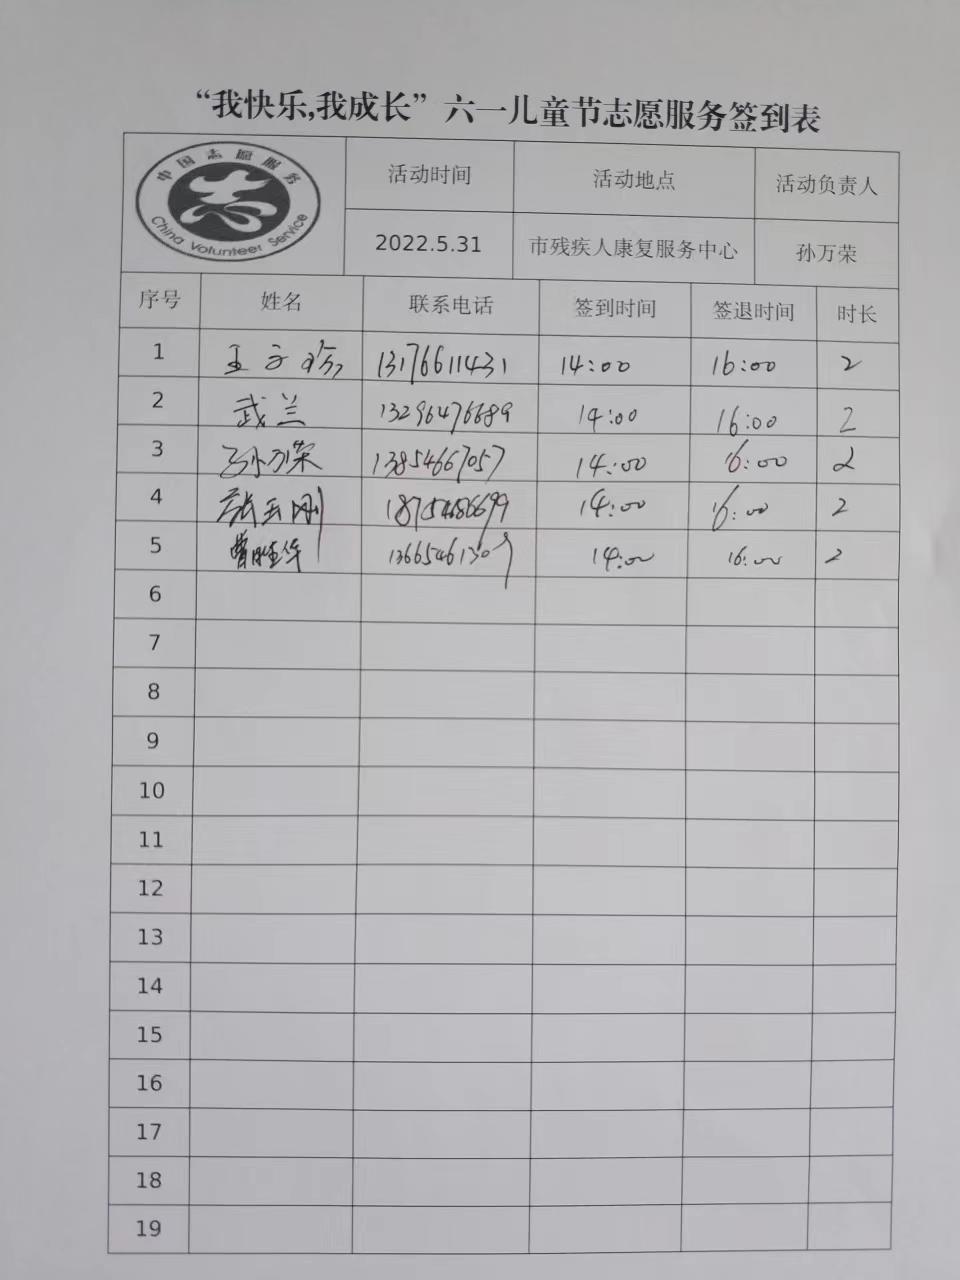 “我快乐,我成长”六一儿童节志愿服务签到表
中国志愿服务
China Volunteer Service
活动时间 活动地点 活动负责人
2022.5.31 市残疾人康复服务中心 孙万荣
序号 姓名 联系电话 签到时间 签退时间 时长
1 王子珍 13176611431 14:00 16:00 2
2 武兰 13296476689 14:00 16:00 2
3 孙万荣 13854667057 14:00 16:00 2
4 张玉刚 18754686699 14:00 16:00 2
5 曹胜华 14:00 16:00 2
6
7
8
9
10
11
12
13
14
15
16
17
18
19